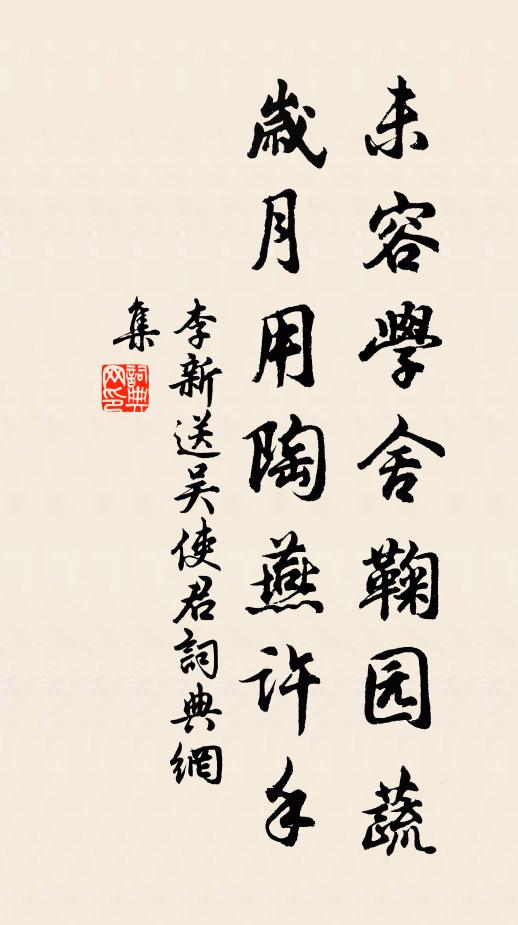 未容學舍鞠园蔬
歲月用陶燕許手
李新送吴使君詞典網
集
詞典网印